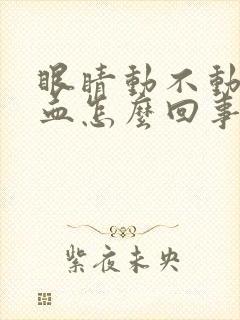 眼睛動不動
血怎麼回事
紫夜未央